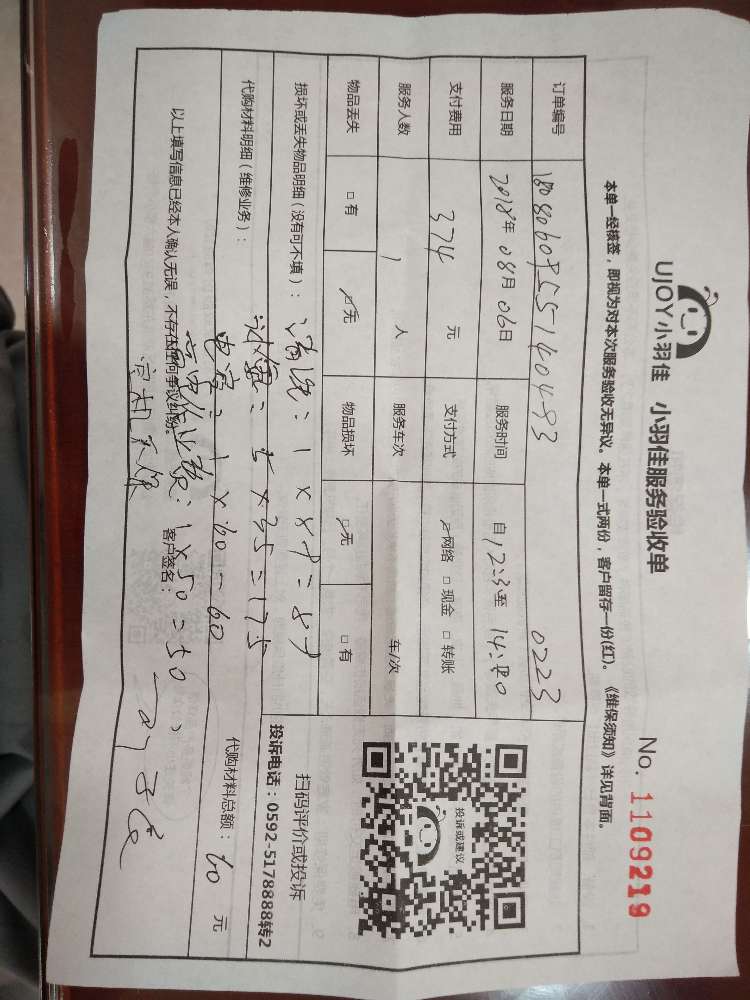 UJOY小羽佳 小羽佳服务验收单
No. 1109219
本单一经核签，即视为对本次服务验收无异议。本单一式两份，客户留存一份(红)。《维保须知》详见背面。
订单编号 0223
服务日期 2018年 08月 06日 服务时间 自12:3至14:40
支付费用 374 元 支付方式 ☑网络 □现金 □转账
服务人数 1 人 服务车次 车/次
物品丢失 □有 ☑无 物品损坏 ☑无 □有
投诉或建议
扫码评价或投诉
投诉电话：0592-5178888转2
损坏或丢失物品明细（没有可不填）： 清洗：1×89=89
：5×35=175
代购材料明细（维修业务）： 电容：1×60=60 代购材料总额：60 元
高空作业费：1×50=50
以上填写信息已经本人确认无误，不存在任何争议纠纷。 客户签名：